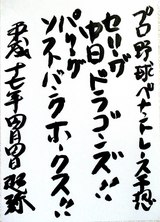 プロ野球ペナントレース予想
セリーグ中日ドラゴンズ!!
パリーグソフトバンクホークス!!
平成十七年四月四日